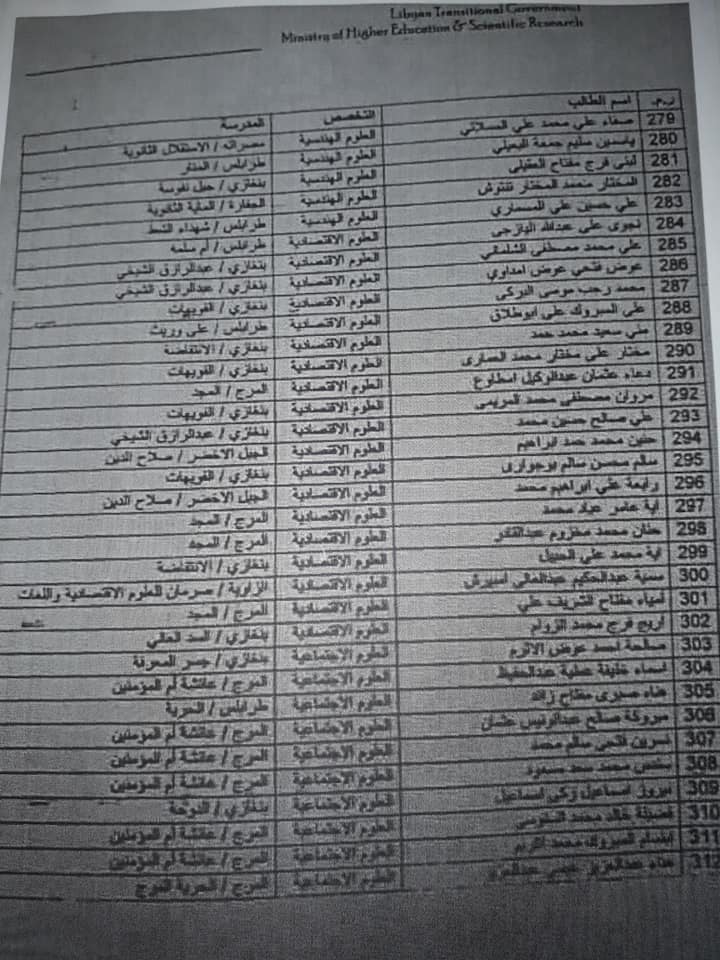 Libyan Transitional Government
Ministry of Higher Education & Scientific Research
ر.م. اسم الطالب التخصص المدرسة
279 صفاء علي محمد علي السلاتي العلوم الهندسية مصراته / الاستقلال الثانوية
280 ياسين سليم جمعة العلوم الهندسية طرابلس / المنار
281 لبنى فرج مفتاح العقيلي العلوم الهندسية بنغازي / جيل نفوسة
282 المختار محمد المختار العلوم الهندسية الجفارة / الماية الثانوية
283 علي حسين علي المسماري العلوم الهندسية طرابلس / شهداء الشط
284 نجوى علي عبدالله اليازجي العلوم الاقتصادية طرابلس / أم سلمه
285 علي محمد مصطفى الشلماني العلوم الاقتصادية بنغازي / عبدالرازق الشيخي
286 عوض فتحي عوض امداوي العلوم الاقتصادية بنغازي / عبدالرازق الشيخي
287 محمد رجب موسى البركي العلوم الاقتصادية بنغازي / الفويهات
288 علي المبروك علي ابوطلاق العلوم الاقتصادية طرابلس / علي وريث
289 مني سعيد محمد حمد العلوم الاقتصادية بنغازي / الانتفاضة
290 مختار علي مختار محمد العلوم الاقتصادية بنغازي / الفويهات
291 دعاء عثمان عبدالوكيل العلوم الاقتصادية المرج / المجد
292 مروان مصطفى محمد المريمي العلوم الاقتصادية بنغازي / الفويهات
293 علي صالح حسين محمد العلوم الاقتصادية بنغازي / عبدالرازق الشيخي
294 حنين محمد حمد ابراهيم العلوم الاقتصادية الجبل الاخضر / صلاح الدين
295 سالم محسن سالم بوجواري العلوم الاقتصادية بنغازي / الفويهات
296 رابعة علي ابراهيم محمد العلوم الاقتصادية الجبل الاخضر / صلاح الدين
297 اية عامر عياد محمد العلوم الاقتصادية المرج / المجد
298 حنان محمد مخزوم عبدالقادر العلوم الاقتصادية المرج / المجد
299 اية محمد علي العلوم الاقتصادية بنغازي / الانتفاضة
300 سمية عبدالحكيم عبدالعالي العلوم الاقتصادية الزاوية / صرمان العلوم الاقتصادية واللغات
301 لمياء مفتاح الشريف علي العلوم الاقتصادية المرج / المجد
302 اريج فرج محمد الزوام العلوم الاقتصادية بنغازي / السد العالي
303 صالحة احمد عوض الاثرم العلوم الاجتماعية بنغازي / جسر المعرفة
304 اسماء خليفة عطية عبدالحفيظ العلوم الاجتماعية المرج / عائشة أم المؤمنين
305 هناء صبري مفتاح زائد العلوم الاجتماعية طرابلس / الحرية
306 مبروكة صالح عبدالونيس عثمان العلوم الاجتماعية المرج / عائشة أم المؤمنين
307 نسرين فتحي سالم محمد العلوم الاجتماعية المرج / عائشة أم المؤمنين
308 محمد سعد مسعود العلوم الاجتماعية المرج / عائشة أم المؤمنين
309 نيروز اسماعيل زكي اسماعيل العلوم الاجتماعية بنغازي / الدوحة
310 فضيلة خالد محمد العلوم الاجتماعية المرج / عائشة أم المؤمنين
311 ابتسام المبروك محمد العلوم الاجتماعية المرج / عائشة أم المؤمنين
312 هناء عبدالعزيز العلوم الاجتماعية المرج / الحرية المرج